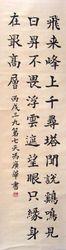 飛來峰上千尋塔聞說鷄鳴見
日昇不畏浮雲遮望眼只緣身
在最高層 丙戌三九第七天馮華書